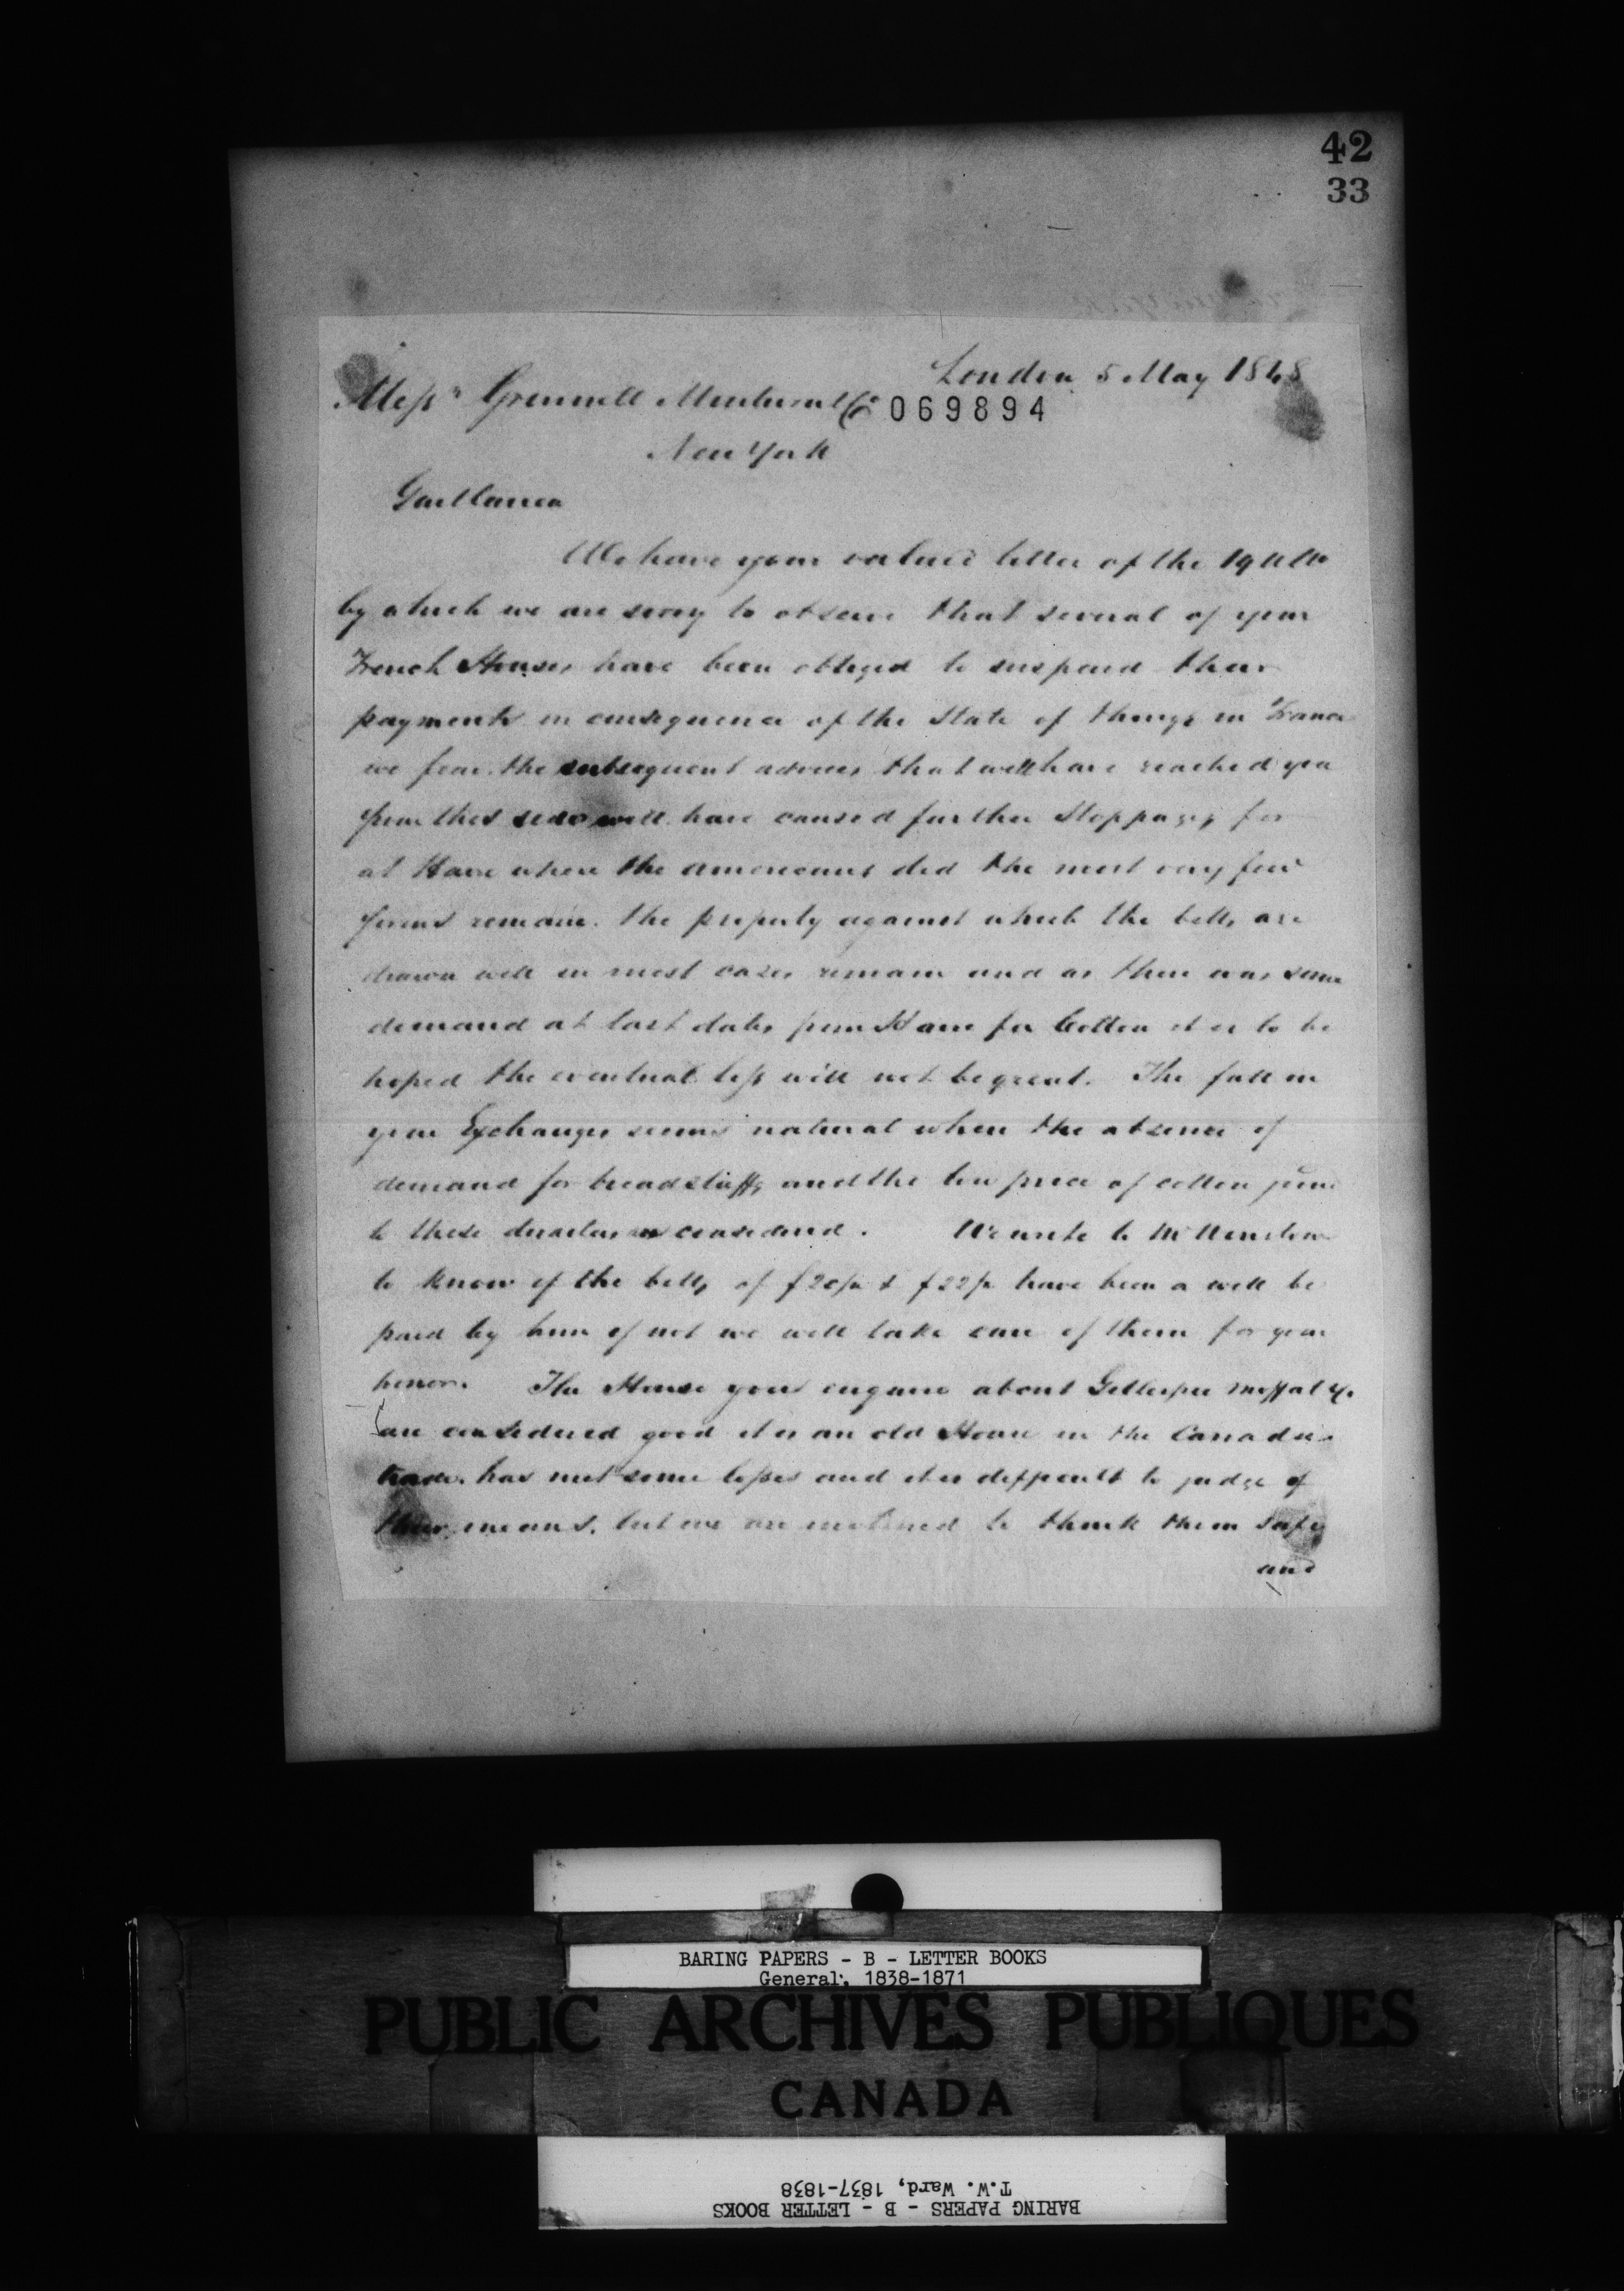 42
33
London 5 May 1848
Messrs Grinnell Minturn & Co 069894
New York
Gentlemen
We have your valued letter of the 19 Ulto
by which we are sorry to observe that several of your
French Houses have been obliged to suspend their
payments in consequence of the State of things in France
we fear the subsequent advices that will have reached you
from this side will have caused further Stoppages for
at Havre where the americans did the most very few
firms remain. the property against which the bills are
drawn will in most cases remain and as there was some
demand at last dates from Havre for Cotton it is to be
hoped the eventual loss will not be great. The fall in
your Exchanges seems natural when the absence of
demand for breadstuffs and the low price of cotton
to these is considered. We write to Mr Winslow
to know if the bills of & have been or will be
paid by him if not we will take care of them for your
honor. The House you enquire about Gillespie Moffat & Co
are considered good it is an old House in the Canada
trade. has met some losses and it is difficult to judge of
their means, but we are inclined to think them safe
and
BARING PAPERS - B - LETTER BOOKS
General, 1838-1871
PUBLIC ARCHIVES PUBLIQUES
CANADA
BARING PAPERS - B - LETTER BOOKS
T.W. Ward, 1837-1838